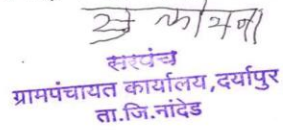 सरपंच
ग्रामपंचायत कार्यालय,दर्यापुर
ता.जि.नांदेड